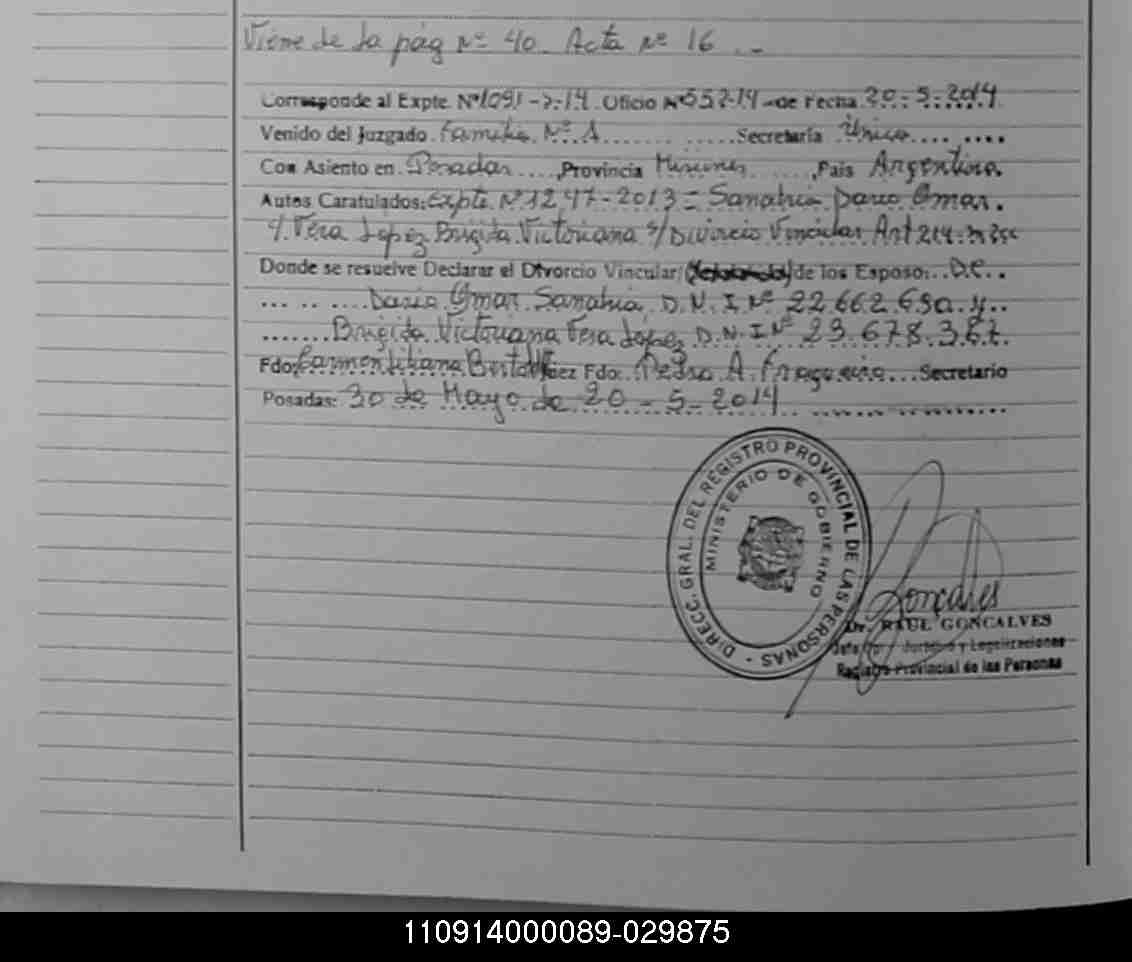 Viene de la pág Nº 40. Acta Nº 16
Corresponde al Expte. Nº1091-7-14. Oficio Nº 557-14-de Fecha 20-5-2014
Venido del Juzgado Familia Nº 1 Secretaria Única
Con Asiento en Posadas, Provincia Misiones, Pais Argentina.
Autos Caratulados: Expte. Nº 3247-2013 = Sanabria Dario Omar.
y. Vera Lopez Brigida Victoriana s/ Divorcio Vincular Art 214 inc
Donde se resuelve Declarar el Divorcio Vincular de los Esposo: De
Dario Omar Sanabria, D.N.I Nº 22.662.690 y
Brigida Victoriana Vera Lopez D.N.I Nº 23.678.387.
Fdo: Carmen Liliana Juez Fdo: Pedro A. Fragueiro Secretario
Posadas: 30 de Mayo de 20-5-2014
DIRECC. GRAL. DEL REGISTRO PROVINCIAL DE LAS PERSONAS -
MINISTERIO DE GOBIERNO
Goncalves
Dr. RAUL GONCALVES
Jefe Juridico y Legalizaciones
Registro Provincial de las Personas
110914000089-029875